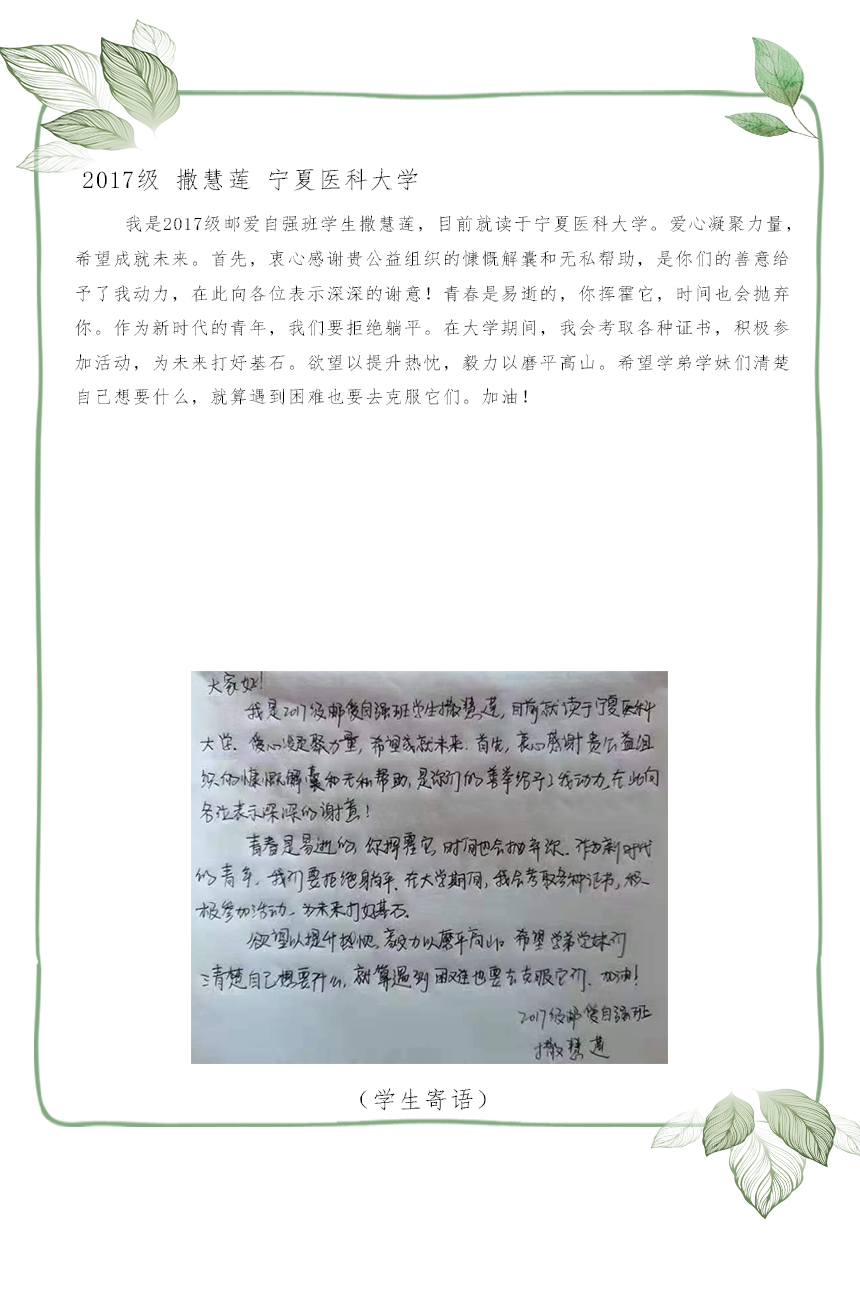 2017级 撒慧莲 宁夏医科大学
我是2017级邮爱自强班学生撒慧莲，目前就读于宁夏医科大学。爱心凝聚力量，
希望成就未来。首先，衷心感谢贵公益组织的慷慨解囊和无私帮助，是你们的善意给
予了我动力，在此向各位表示深深的谢意！青春是易逝的，你挥霍它，时间也会抛弃
你。作为新时代的青年，我们要拒绝躺平。在大学期间，我会考取各种证书，积极参
加活动，为未来打好基石。欲望以提升热忱，毅力以磨平高山。希望学弟学妹们清楚
自己想要什么，就算遇到困难也要去克服它们。加油！
大家好！
我是2017级邮爱自强班学生撒慧莲，目前就读于宁夏医科
大学。爱心凝聚力量，希望成就未来。首先，衷心感谢贵公益组
织的慷慨解囊和无私帮助，是你们的善举给予了我动力，在此向
各位表示深深的谢意！
青春是易逝的，你挥霍它，时间也会抛弃你。作为新时代
的青年，我们要拒绝躺平。在大学期间，我会考取各种证书，积
极参加活动，为未来打好基石。
欲望以提升热忱，毅力以磨平高山。希望学弟学妹们
清楚自己想要什么，就算遇到困难也要去克服它们。加油！
2017级邮爱自强班
撒慧莲
（学生寄语）